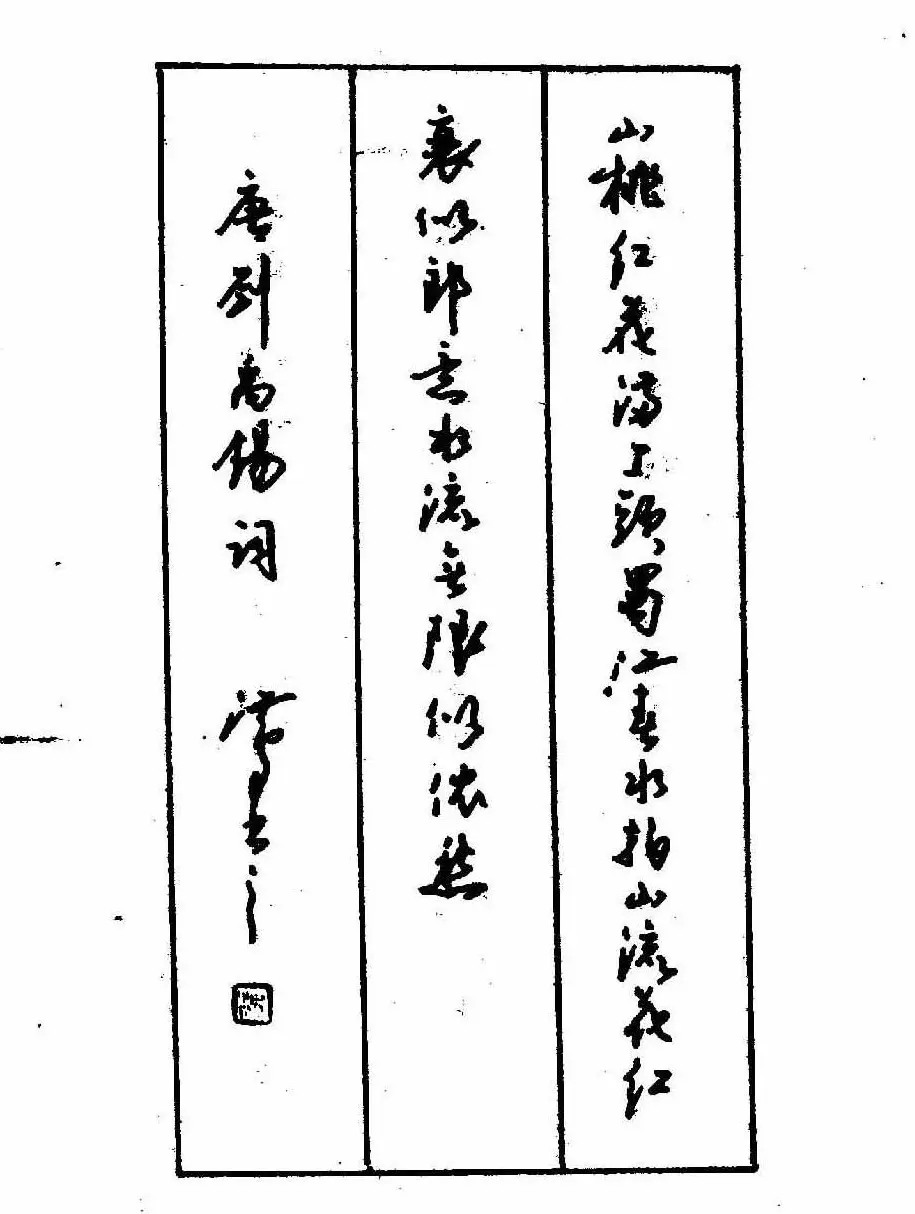 山桃红花满上頭蜀江春水拍山流花红
衰似郎意水流無限似侬愁
唐劉禹錫词 书之